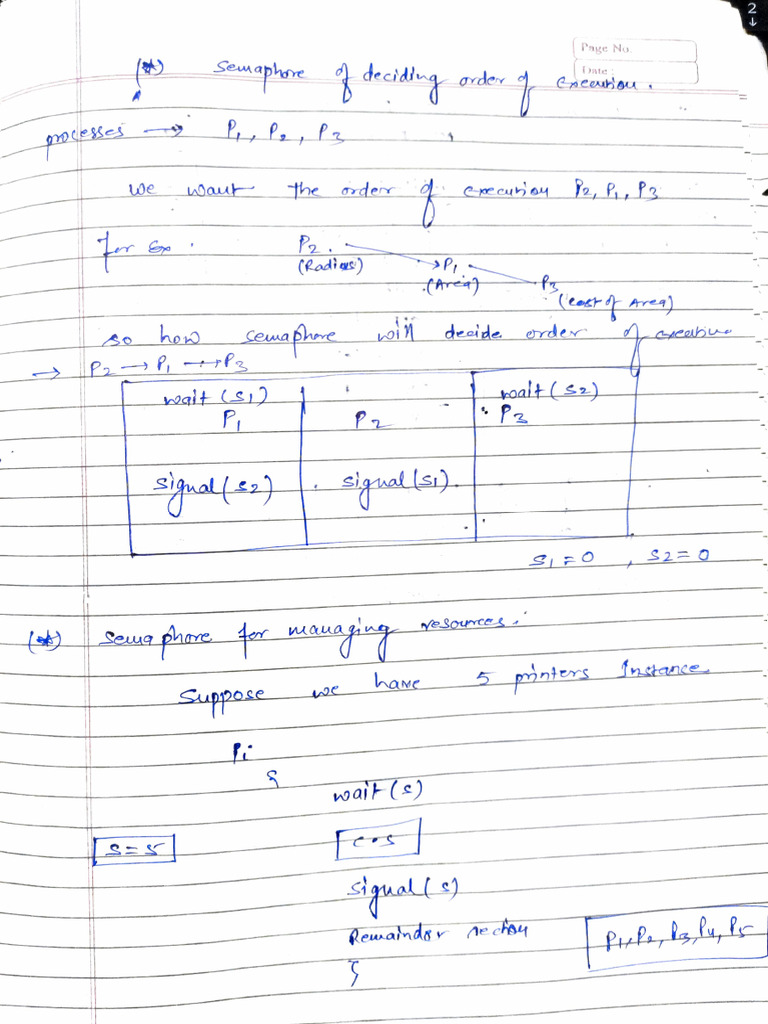 2
↓
Page No.
Date :
(*) Semaphore of deciding order of execution.
processes → P1, P2, P3
we want the order of execution P2, P1, P3
for Ex. P2 → P1 → P3
(Radius) (Area) (cost of Area)
so how semaphore will decide order of
→ P2 → P1 → P3
wait (S1) wait (S2)
P1 P2 P3
signal (S2) signal (S1).
S1 = 0 , S2 = 0
(*) Semaphore for managing resources.
Suppose we have 5 printers Instance.
Pi
{
wait (s)
S = 5 C.S
signal (s)
Remainder section P1, P2, P3, P4, P5
}